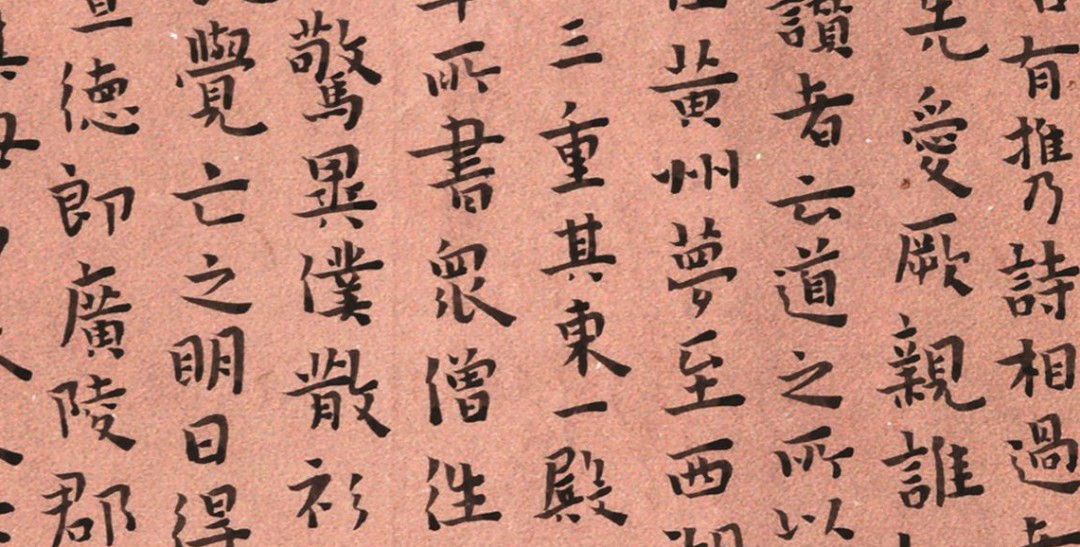 有推乃詩相過
先愛厥親誰
讃者云道之所以
黄州夢至西湖
三重其東一殿
年所書衆僧往
驚異僕散衫
覺亡之明日得
宣德郎廣陵郡
其母